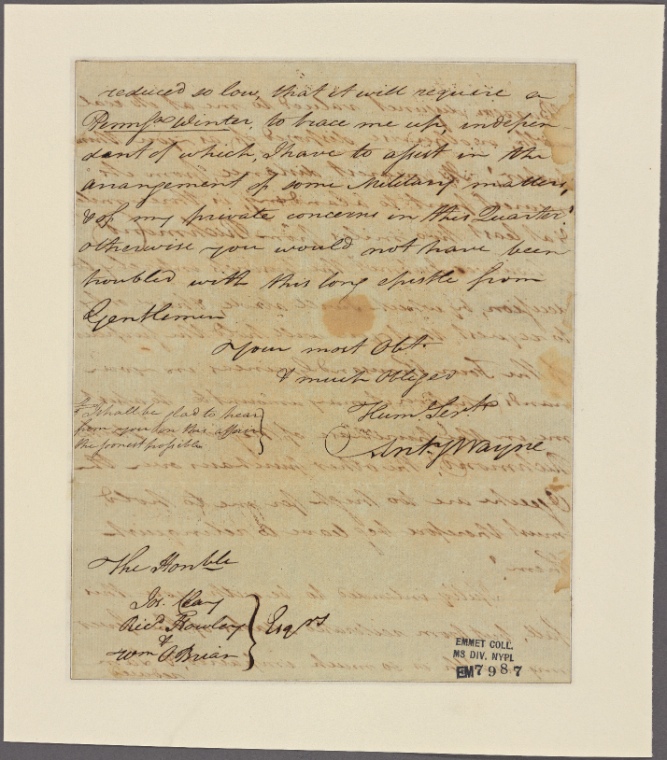 reduced so low, that it will require a
Pennsa. Winter, to brace me up, indepen-
dant of which, I have to assist in the
arangement of some Military matters,
& of my private concerns in this Quarter.
otherwise you would not have been
troubled with this long epistle from
Gentlemen
Your most Obt.
& much Obliged
Huml. Servt.
Anty. Wayne
I shall be glad to hear
from you on this affair
the soonest possible
The Honble
Jos. Clay
Richd. Howley
&
Wm. OBrian
Esqrs
EMMET COLL.
MS DIV. NYPL
EM 7987